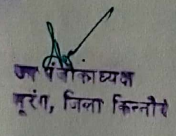 उप पंजीकाध्यक्ष
मूरंग, जिला किन्नौर